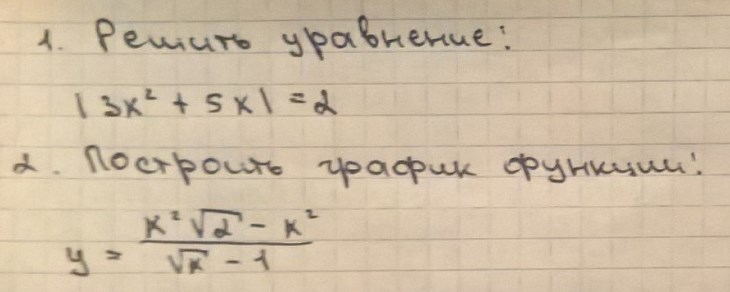 1. Решить уравнение:
|3x² + 5x| = 2
2. Построить график функции:
y = (x²√2 - x²) / (√x - 1)